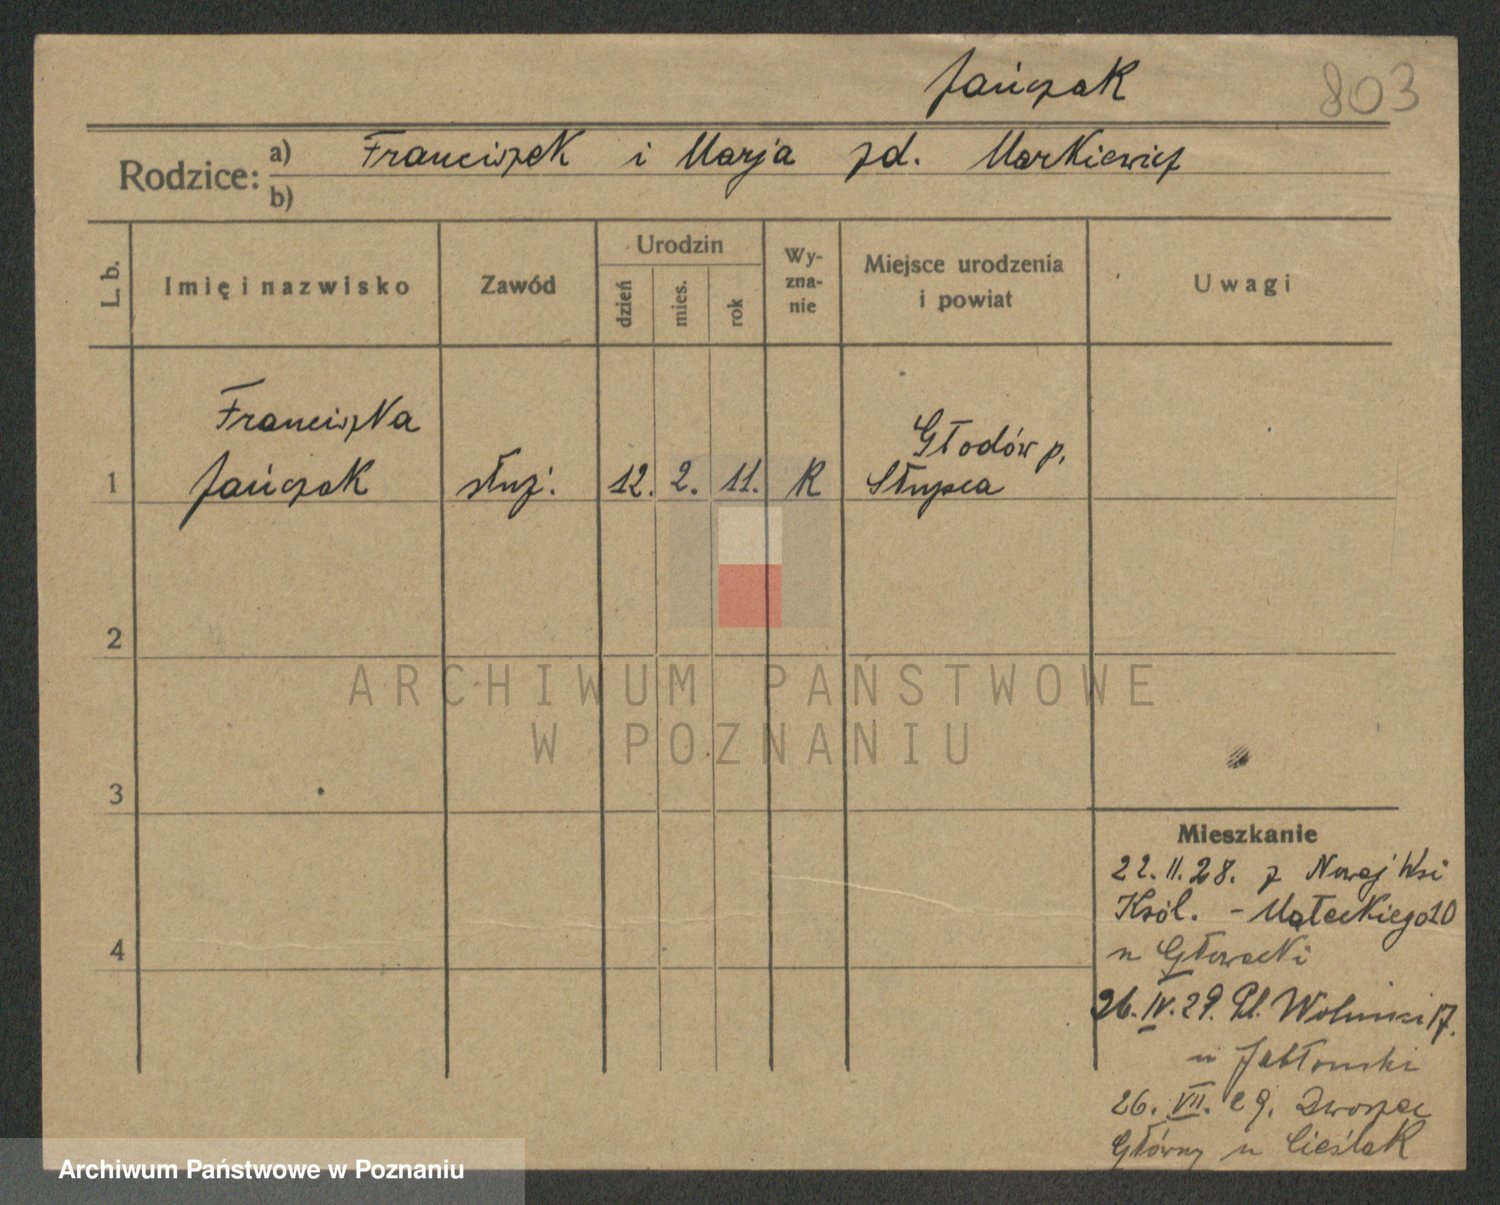 Jańczak
803
Rodzice:
a) Franciszek i Marja zd. Markiewicz
b)
L. b.
Imię i nazwisko
Zawód
Urodzin
dzień
mies.
rok
Wy-
zna-
nie
Miejsce urodzenia
i powiat
Uwagi
Franciszka
1 Jańczak służ. 12. 2. 11. R
Głodów p.
Słupca
2
3
4
Mieszkanie
22. II. 28. z Nowej Wsi
Król. - Małeckiego 20
u Głowacki
26. IV. 29. Pl. Wolności 17.
u Jabłoński
26. VII. 29. Dworzec
Główny u Cieślak
ARCHIWUM PAŃSTWOWE
W POZNANIU
Archiwum Państwowe w Poznaniu